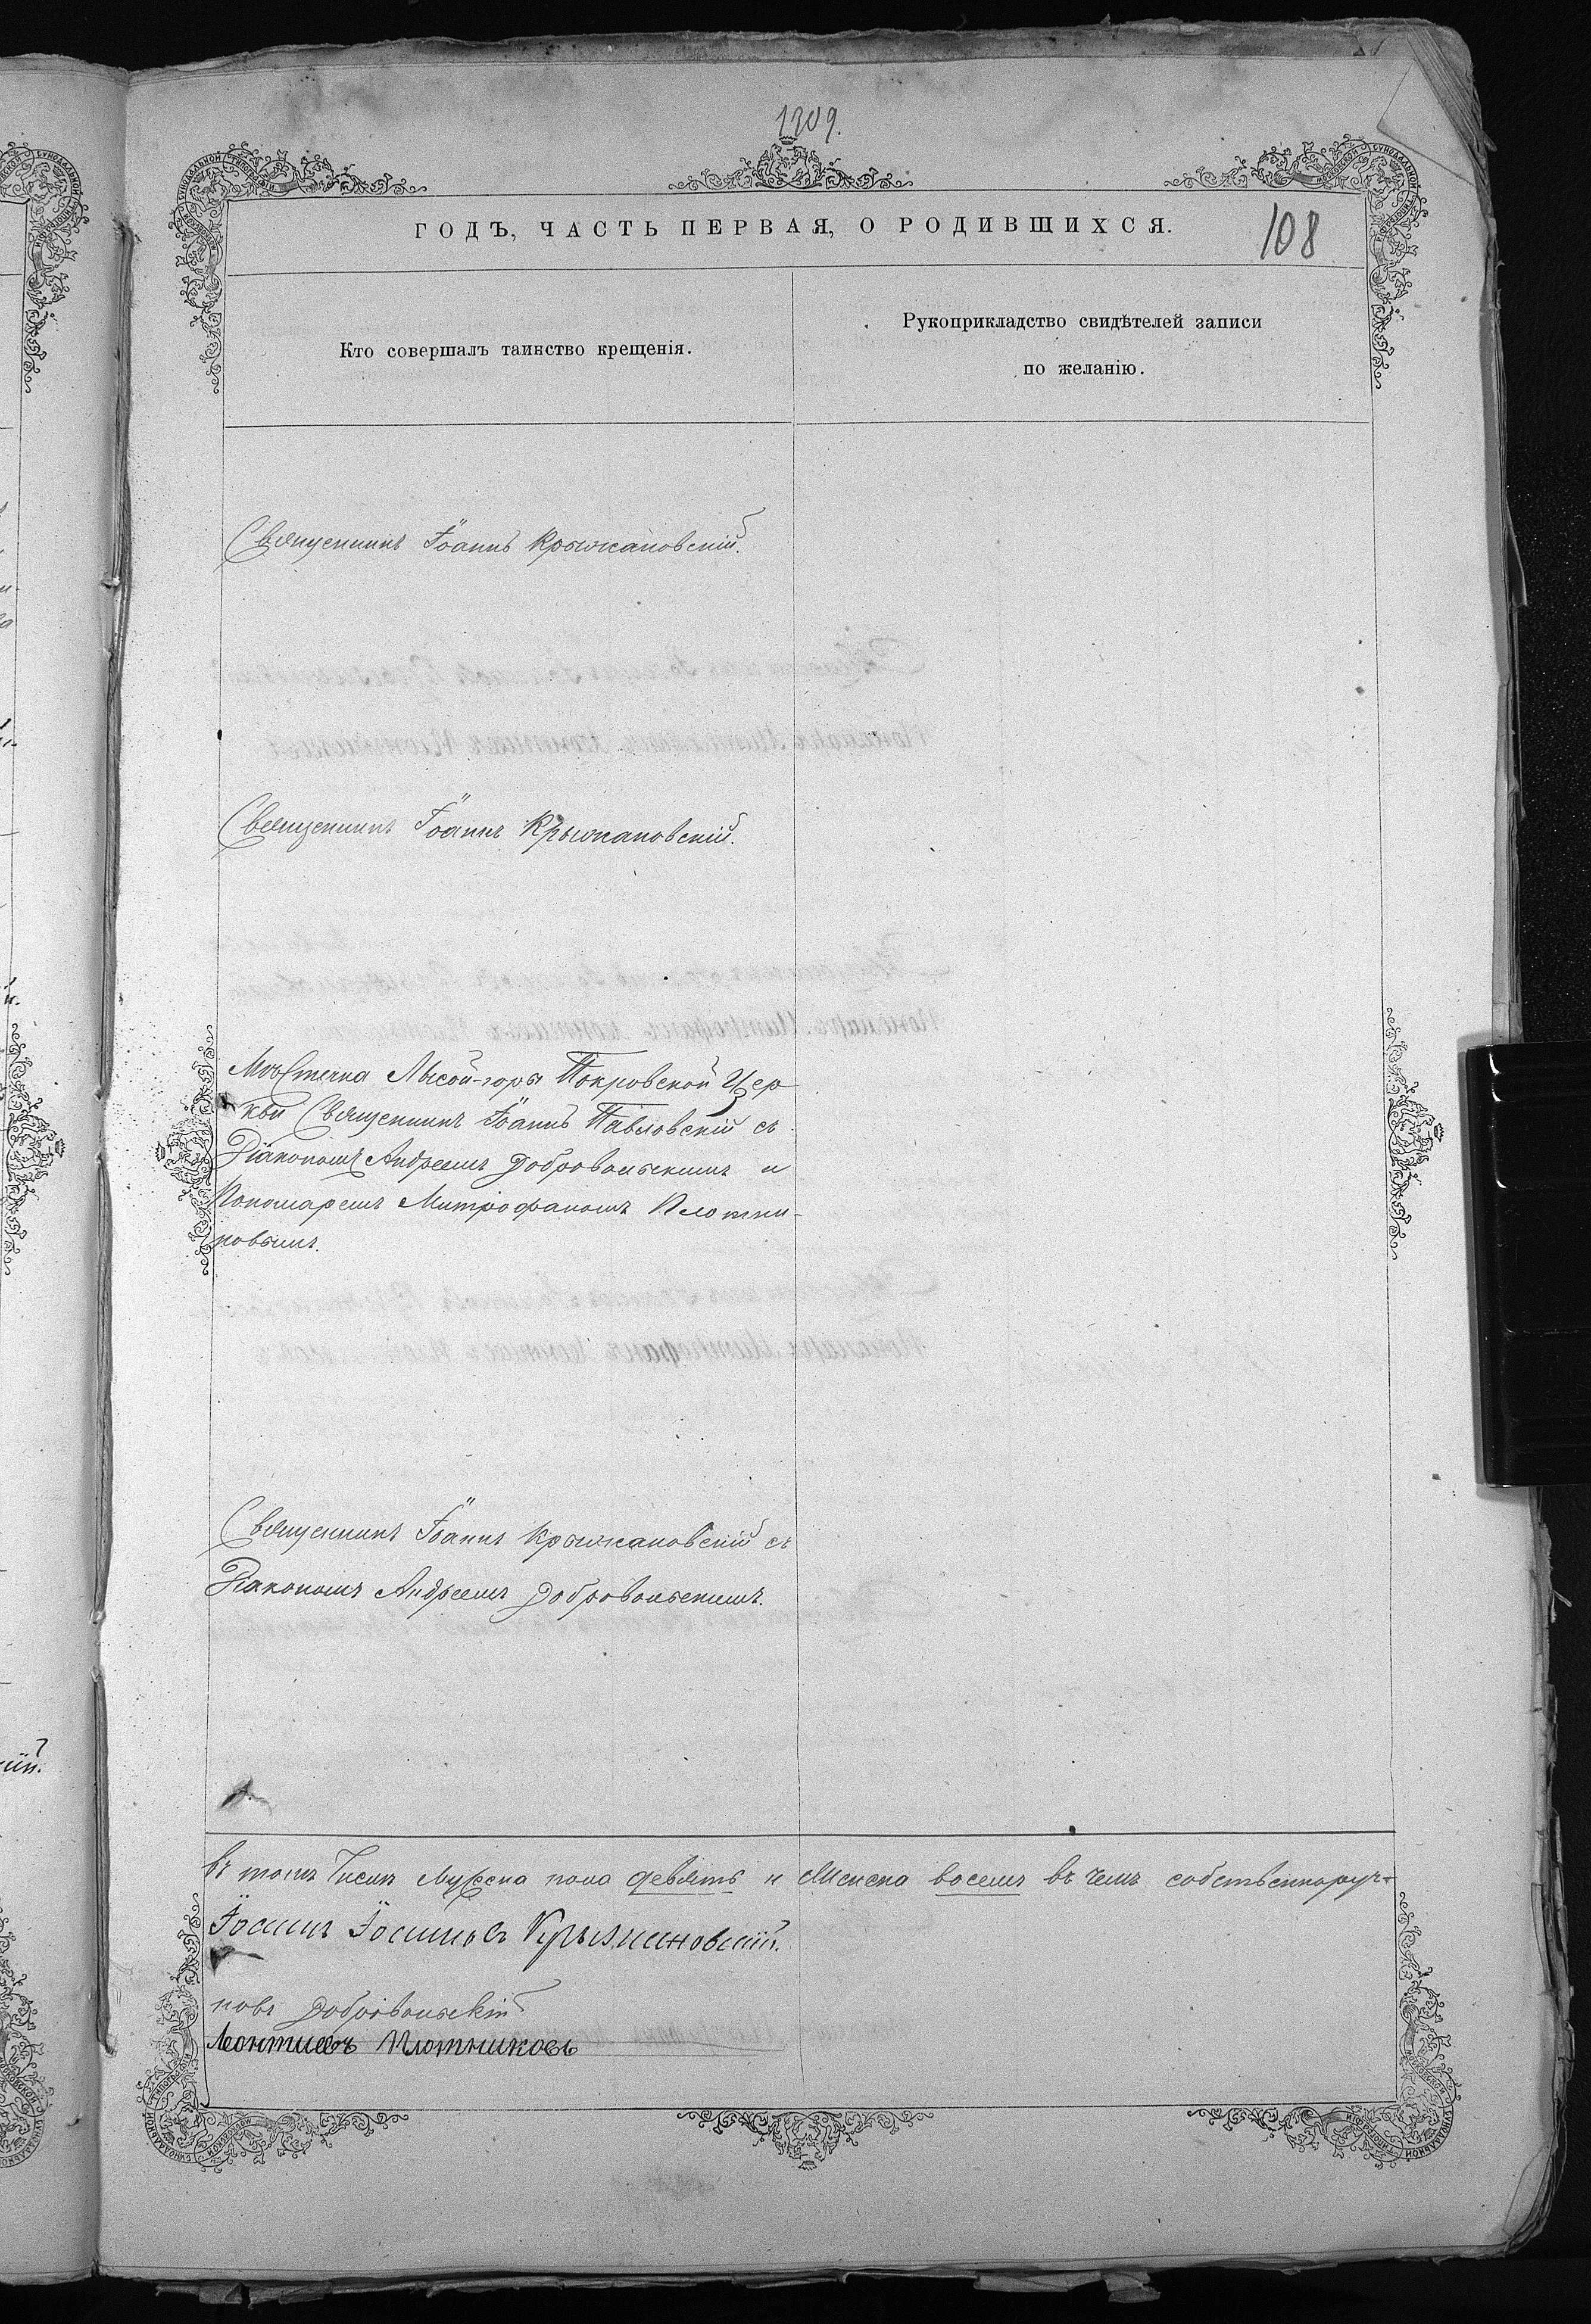 1309.
ГОДЪ, ЧАСТЬ ПЕРВАЯ, О РОДИВШИХСЯ.
108
Кто совершалъ таинство крещенія.
Рукоприкладство свидѣтелей записи
по желанію.
Священникъ Іоаннъ Крыжановскій.
Священникъ Іоаннъ Крыжановскій.
Мѣстечка Лысой-горы Покровской Цер
кви Священникъ Іоаннъ Павловскій съ
Діакономъ Андреемъ Добровольскимъ и
Пономаремъ Митрофаномъ Плотни-
ковымъ.
Священникъ Іоаннъ Крыжановскій съ
Діакономъ Андреемъ Добровольскимъ.
въ томъ числѣ мужеска пола девять и женска восемь въ чемъ собственноруч-
Іоаннъ Іоанновъ Крыжановскій.
новъ Добровольскій
Леонтиевъ Плотниковъ